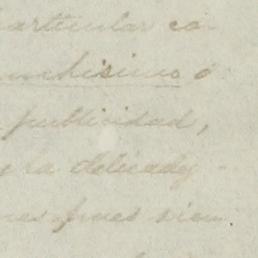 articular ca-
uchisimo ó
publicidad,
y la delicade
nes pues sien